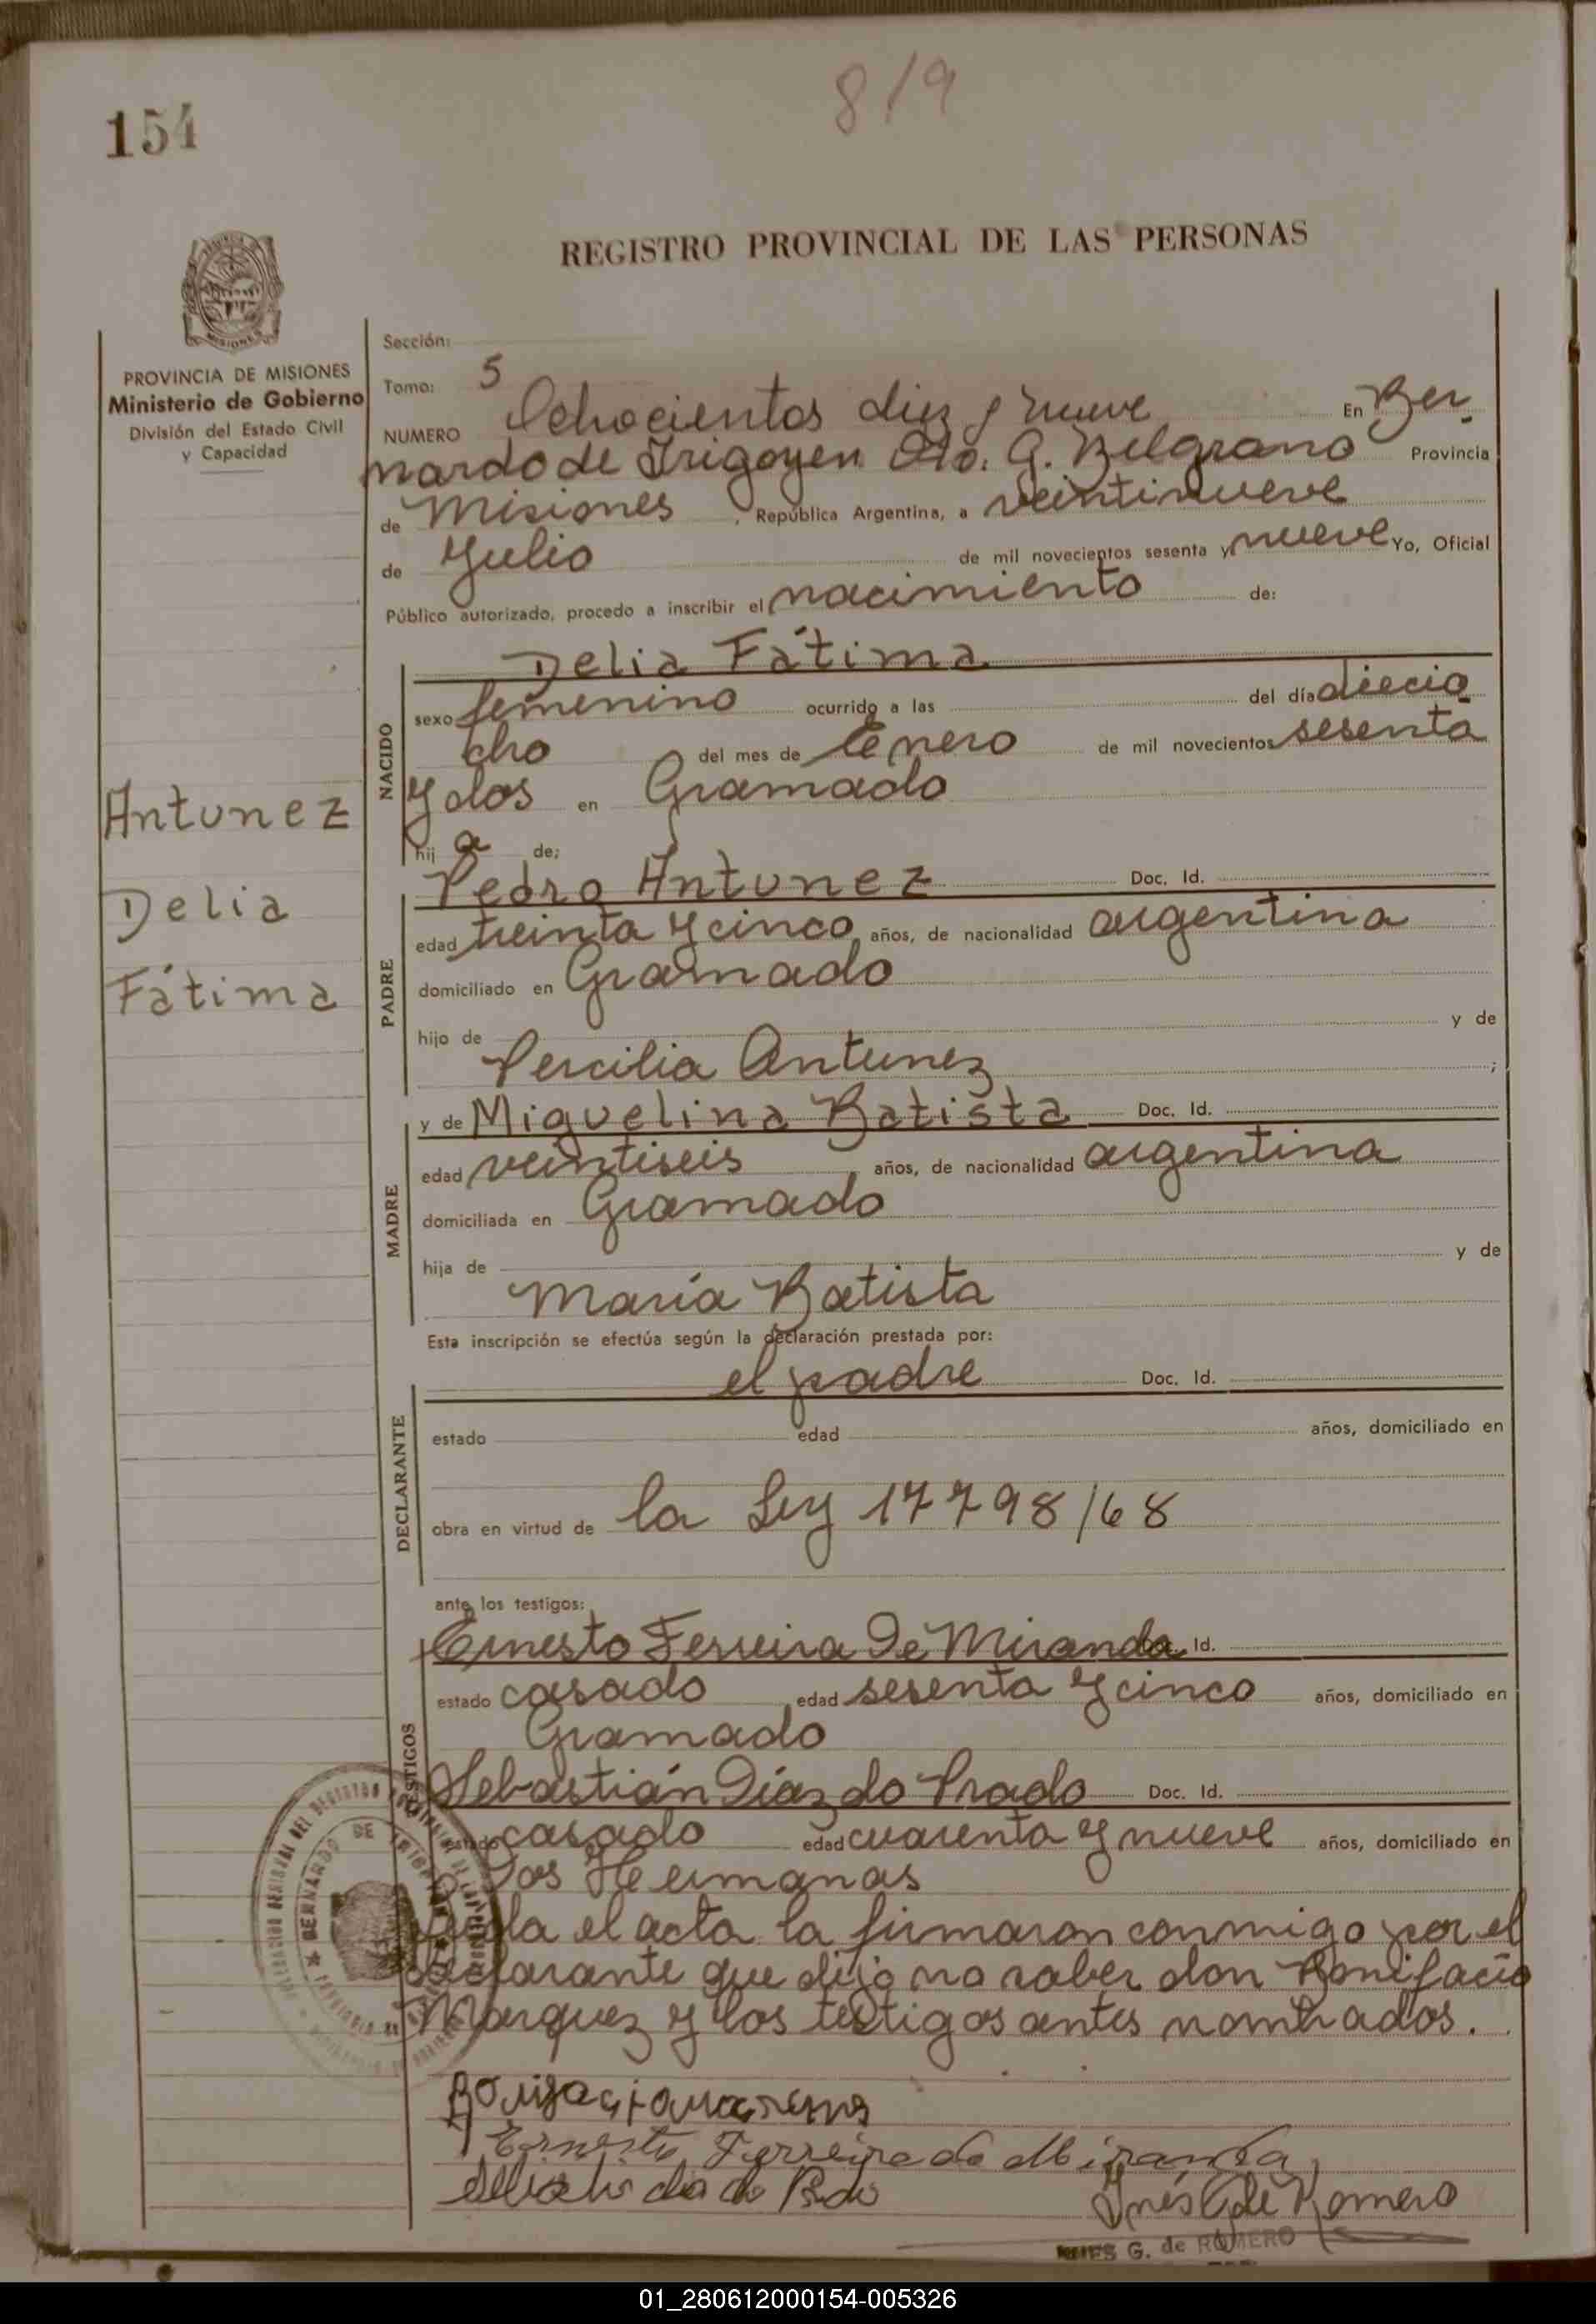 819
154
REGISTRO PROVINCIAL DE LAS PERSONAS
MISIONES
PROVINCIA DE MISIONES
Ministerio de Gobierno
División del Estado Civil
y Capacidad
Antunez
Delia
Fátima
Sección:
Tomo: 5
NUMERO Ochocientos diez y nueve En Ber
nardo de Irigoyen Dto. G. Belgrano Provincia
de Misiones, República Argentina, a veintinueve
de Julio de mil novecientos sesenta y nueve Yo, Oficial
Público autorizado, procedo a inscribir el nacimiento de:
NACIDO
Delia Fátima
sexo femenino ocurrido a las del día diecio
cho del mes de Enero de mil novecientos sesenta
y dos en Gramado
hij a de;
PADRE
Pedro Antunez Doc. Id.
edad treinta y cinco años, de nacionalidad argentina
domiciliado en Gramado
hijo de y de
Percilia Antunez ;
MADRE
y de Miguelina Batista Doc. Id.
edad veintiseis, años, de nacionalidad argentina
domiciliada en Gramado
hija de y de
María Batista
Esta inscripción se efectúa según la declaración prestada por:
DECLARANTE
el padre Doc. Id.
estado edad años, domiciliado en
obra en virtud de la Ley 17798/68
ante los testigos:
TESTIGOS
Ernesto Ferreira De Miranda Doc. Id.
estado casado, edad sesenta y cinco años, domiciliado en
Gramado
Sebastián Díaz do Prado Doc. Id.
estado casado edad cuarenta y nueve años, domiciliado en
Dos Hermanas
el acta la firmaron conmigo por el
declarante que dijo no saber don Bonifacio
Marquez y los testigos antes nombrados.
Ernesto Ferreira de Miranda
Inés G de Romero
INES G. de ROMERO
BERNARDO DE IRIGOYEN
01_280612000154-005326